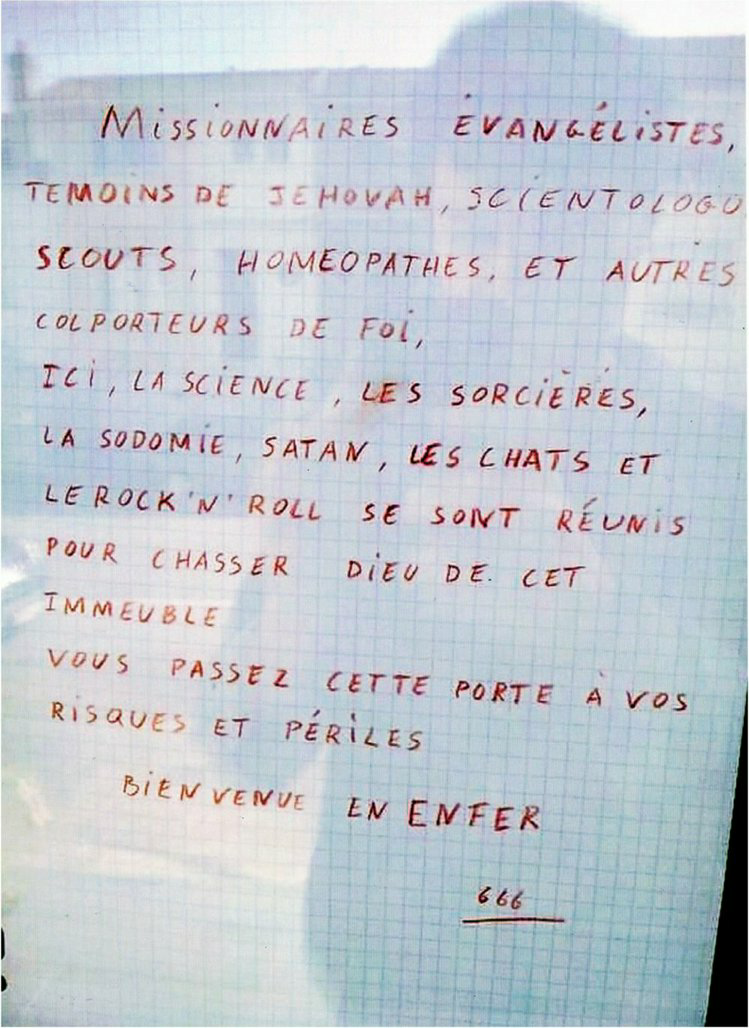 MISSIONNAIRES ÉVANGÉLISTES,
TEMOINS DE JEHOVAH, SCIENTOLOGU
SCOUTS, HOMEOPATHES, ET AUTRES
COLPORTEURS DE FOI,
ICI, LA SCIENCE, LES SORCIÈRES,
LA SODOMIE, SATAN, LES CHATS ET
LE ROCK'N'ROLL SE SONT RÉUNIS
POUR CHASSER DIEU DE CET
IMMEUBLE
VOUS PASSEZ CETTE PORTE À VOS
RISQUES ET PÉRILES
BIENVENUE EN ENFER
666